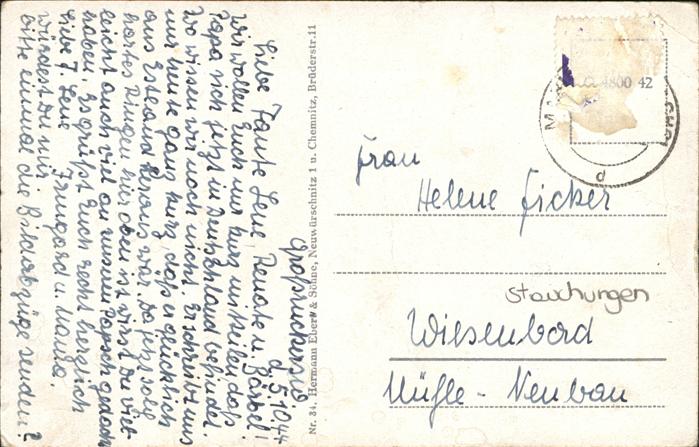 Großrückerswalde
d. 5.10.44
Liebe Tante Lene, Renate u. Bärbel!
Wir wollen Euch nur kurz mitteilen daß
Papa sich jetzt in Deutschland befindet.
Wo wissen wir noch nicht. Er schreibt uns
nur heute ganz kurz, daß er glücklich
aus Estland heraus wär. Da jetzt so
hartes Ringen hier oben ist wirst Du viel-
leicht auch viel an unsern gedacht
haben. Es grüßt Euch recht herzlich
Irmgard u. Mama.
Liebe T. Lene
würdest Du mir
bitte einmal die Bildabzüge senden?
Nr. 34. Hermann Ebert & Söhne, Neuwürschnitz 1 u. Chemnitz, Brüderstr. 11
4800 42
d
Frau
Helene Ficker
Stauchungen
Wiesenbad
Mühle - Neubau